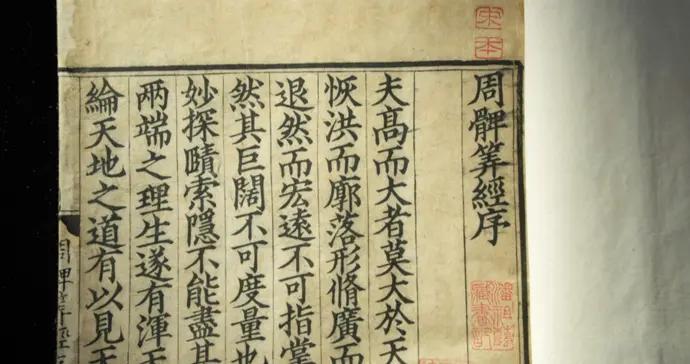 宋本
周髀筭經序
潘祖蔭
藏書記
夫髙而大者莫大於天
恢洪而廓落形脩廣而
退然而宏遠不可指掌
然其巨闊不可度量也
妙探賾索隱不能盡其
兩端之理生遂有渾天
綸天地之道有以見天